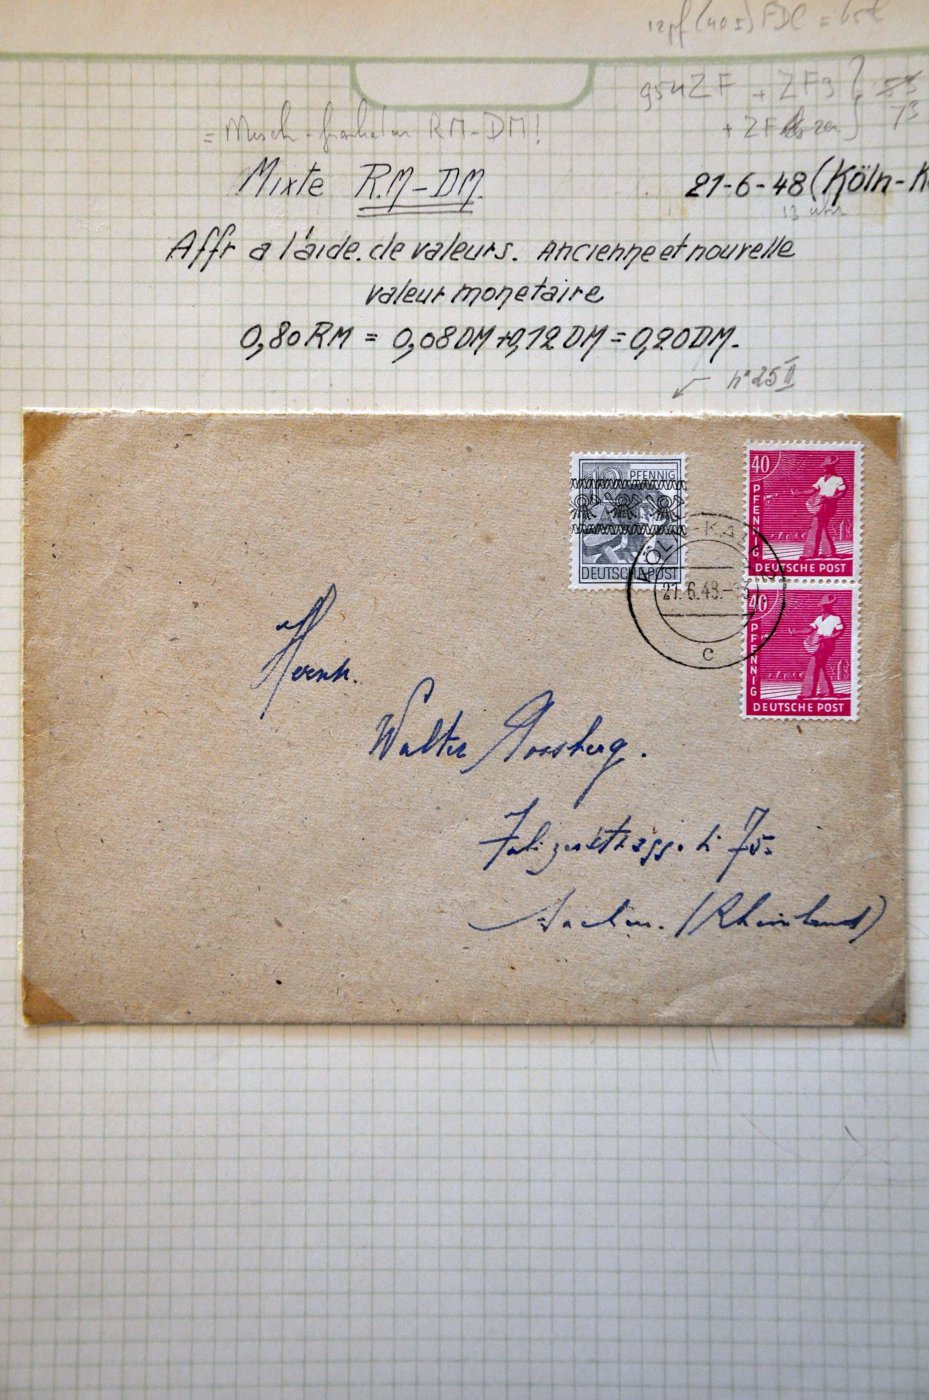 12pf (40 I) FDC =
954ZF + ZF9
+ ZF
73
= Misch-frankatur RM-DM!
Mixte RM-DM.
21-6-48 (Köln-K
13 uhr
Affr a l'aide de valeurs. Ancienne et nouvelle
valeur monetaire
0,80 RM = 0,08 DM + 0,12 DM = 0,20 DM.
n° 25 II
12 PFENNIG
DEUTSCHE POST
40 PFENNIG
DEUTSCHE POST
40 PFENNIG
DEUTSCHE POST
KÖLN-KA
21.6.48.-13
c
Herrn.
Walter
75.
Aachen. (Rheinland)